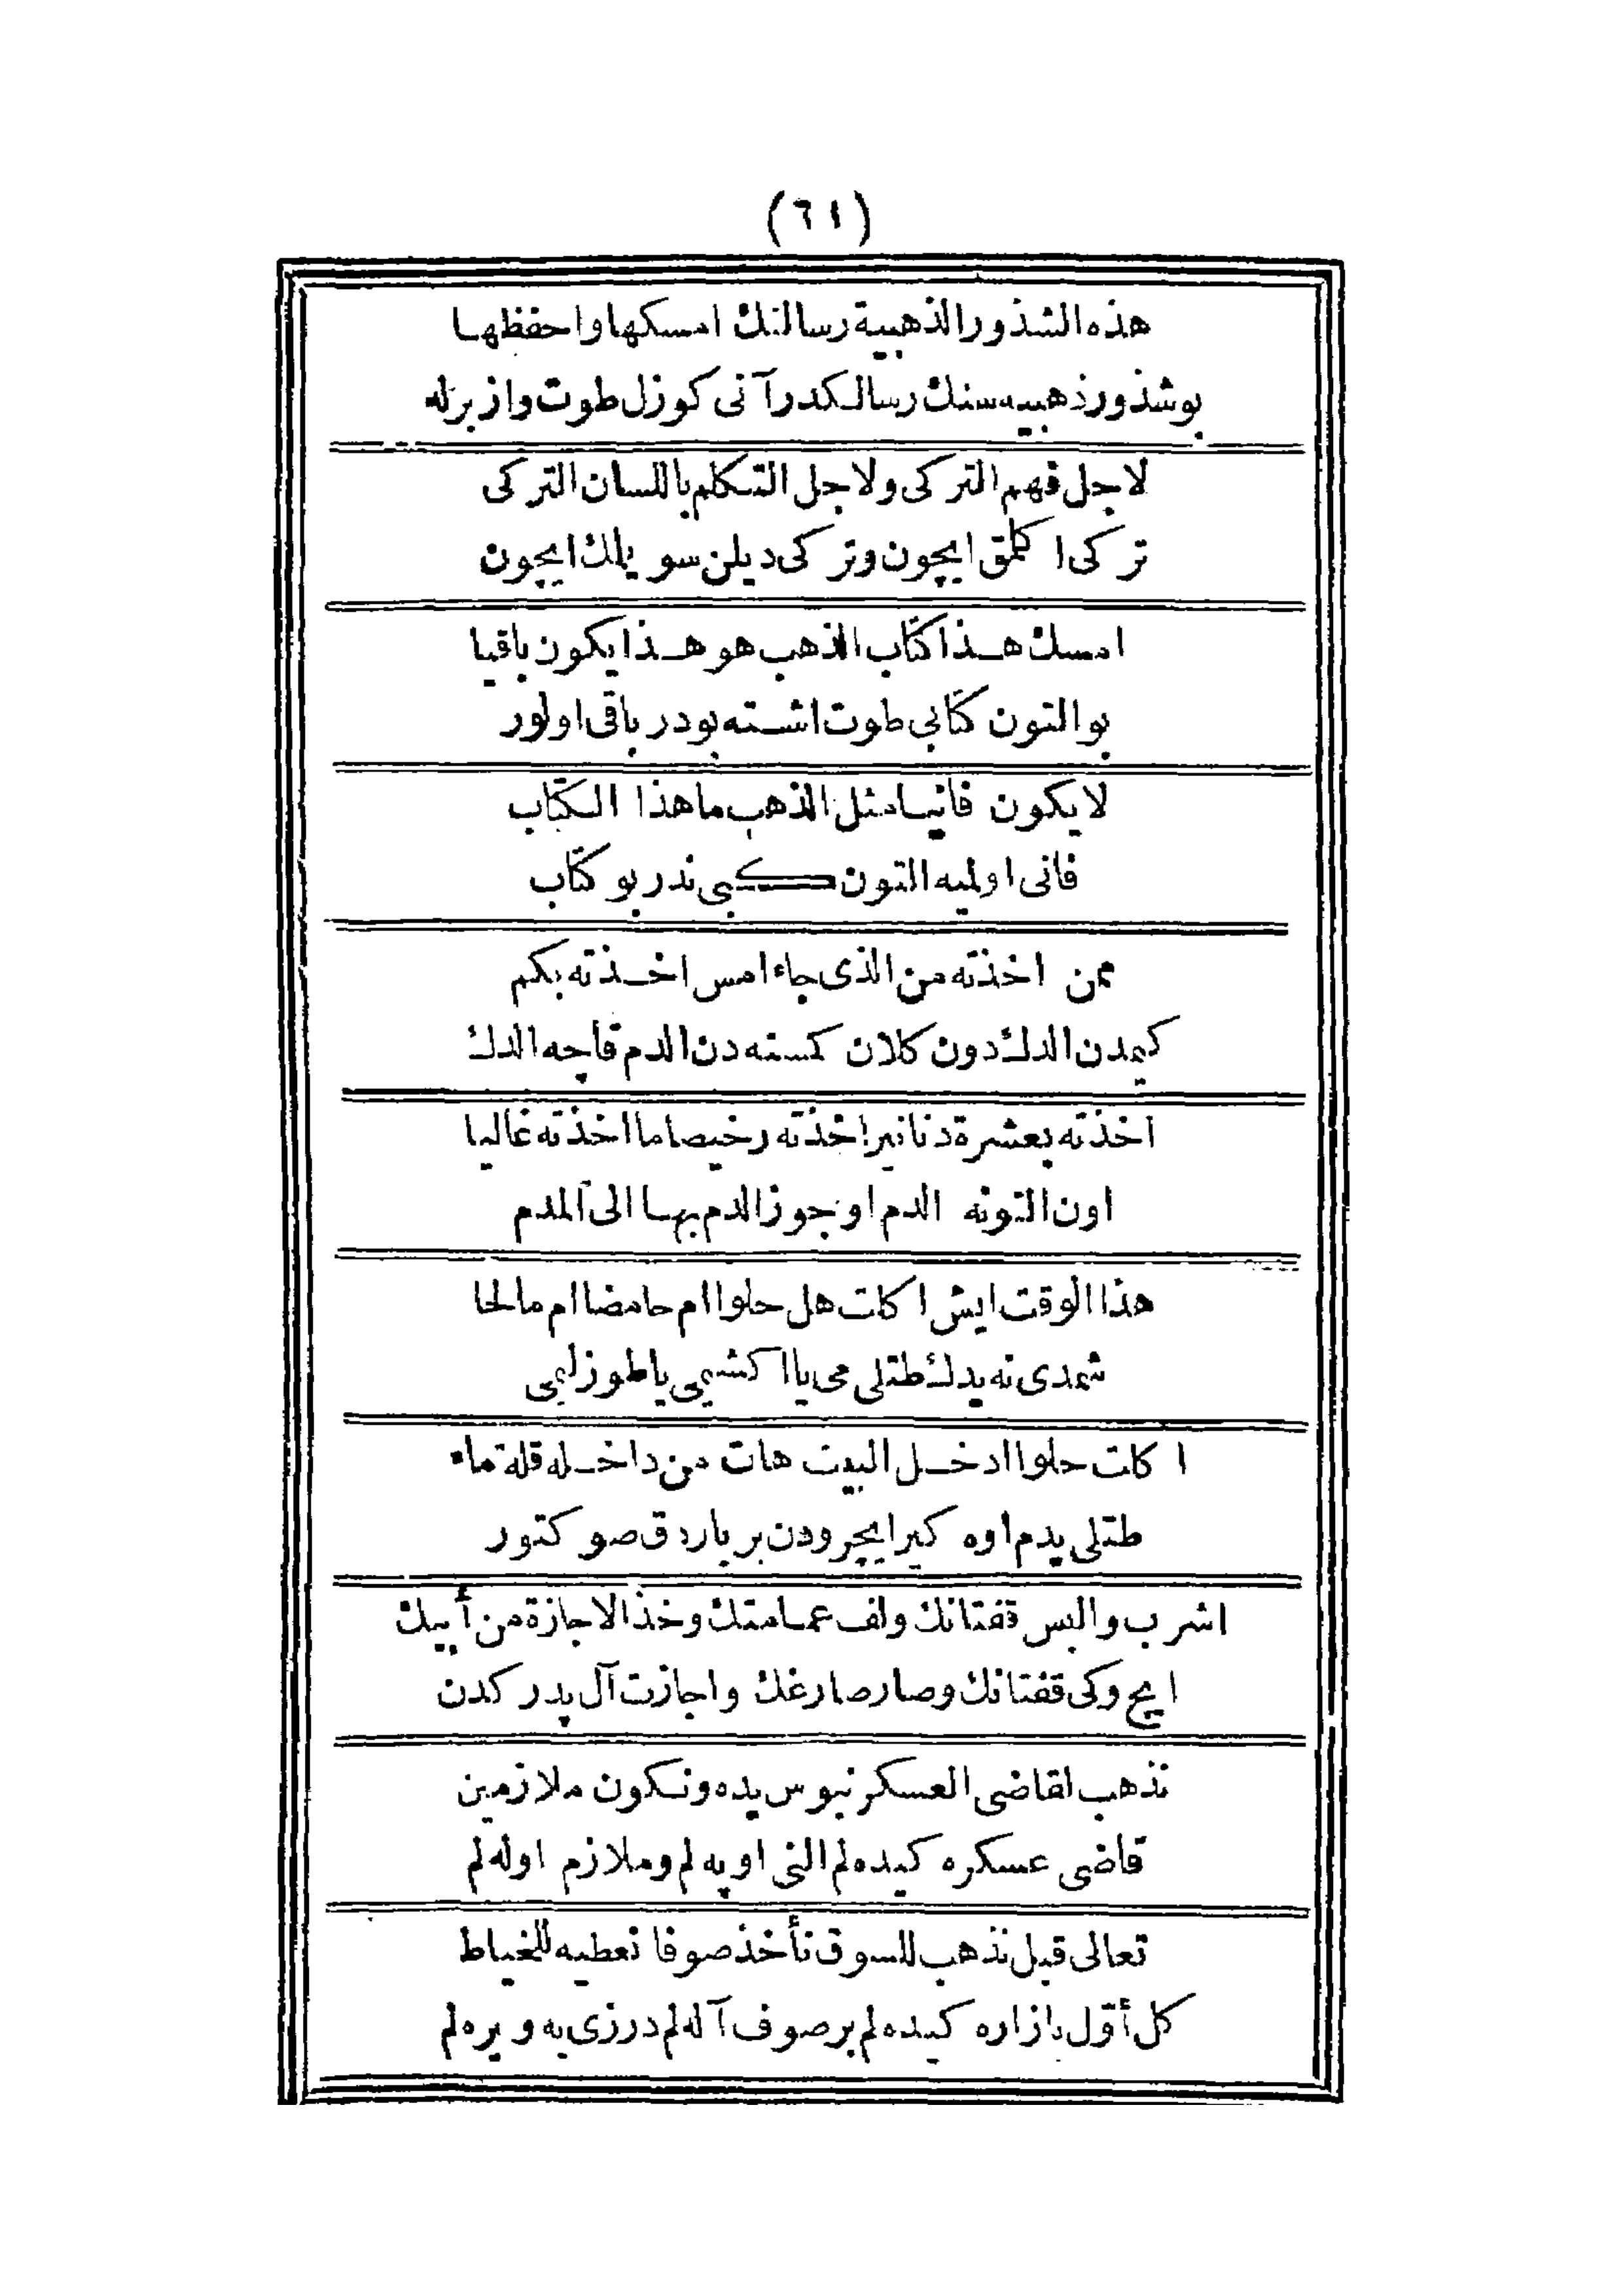 (٦١)
هذه الشذور الذهبية رسالتك امسكها واحفظها
بو شذور ذهبيه سنك رسالكدر آنى كوزل طوت وازبرله
لاجل فهم التركى ولاجل التكلم باللسان التركى
تركى اكلمق ايچون وتركى ديلن سويلمك ايچون
امسك هذا كتاب الذهب هو هذا يكون باقيا
بو التون كتابى طوت اشته بودر باقى اولور
لا يكون فانيا مثل الذهب ما هذا الكتاب
فانى اولميه التون كبى ندر بو كتاب
ممن اخذته من الذى جاء امس اخذته بكم
كيمدن الدك دون كلان كمسنه دن الدم قاچه الدك
اخذته بعشرة دنانير اخذته رخيصا ما اخذته غاليا
اون التونه الدم اوجوز الدم بهالى آلمدم
هذا الوقت ايش اكلت هل حلوا ام حامضا ام مالحا
شمدى نه يدك طتلى مى يا اكشيمى يا طوزليمى
اكلت حلوا ادخل البيت هات من داخله قلة ماء
طتلى يدم اوه كير ايچرودن بر بارداق صو كتور
اشرب والبس قفتانك ولف عمامتك وخذ الاجازة من أبيك
ايچ وكى قفتانك وصار صارغك واجازت آل پدركدن
نذهب لقاضى العسكر نبوس يده ونكون ملازمين
قاضى عسكره كيده لم النى اوپه لم وملازم اوله لم
تعالى قبل نذهب للسوق نأخذ صوفا نعطيه للخياط
كل أول بازاره كيده لم بر صوف آله لم درزى يه ويره لم